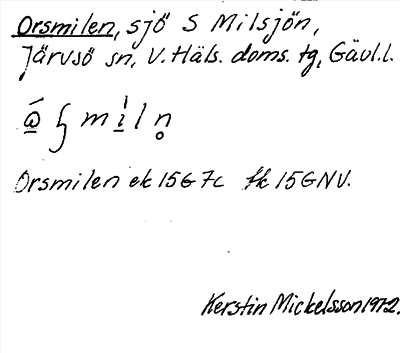 Orsmilen, sjö S Milsjön,
Järvsö sn, V. Häls. doms. tg, Gävl.l.
Orsmilen ek 15G7c fk 15GNV.
Kerstin Mickelsson 1972.